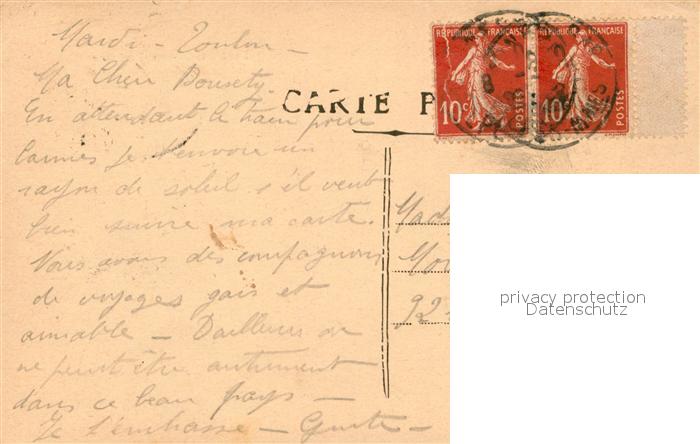 Mardi - Toulon -
Ma Chère
En attendant le train pour
Cannes je t'envoie un
rayon de soleil s'il veut
bien suivre ma carte.
Nous avons des compagnons
de voyages gais et
aimable - Dailleurs on
ne peut être autrement
dans ce beau pays -
Je t'embrasse -
CARTE P
REPUBLIQUE FRANÇAISE
10c
POSTES
REPUBLIQUE FRANÇAISE
10c
POSTES
Mad
Mo
92
privacy protection
Datenschutz